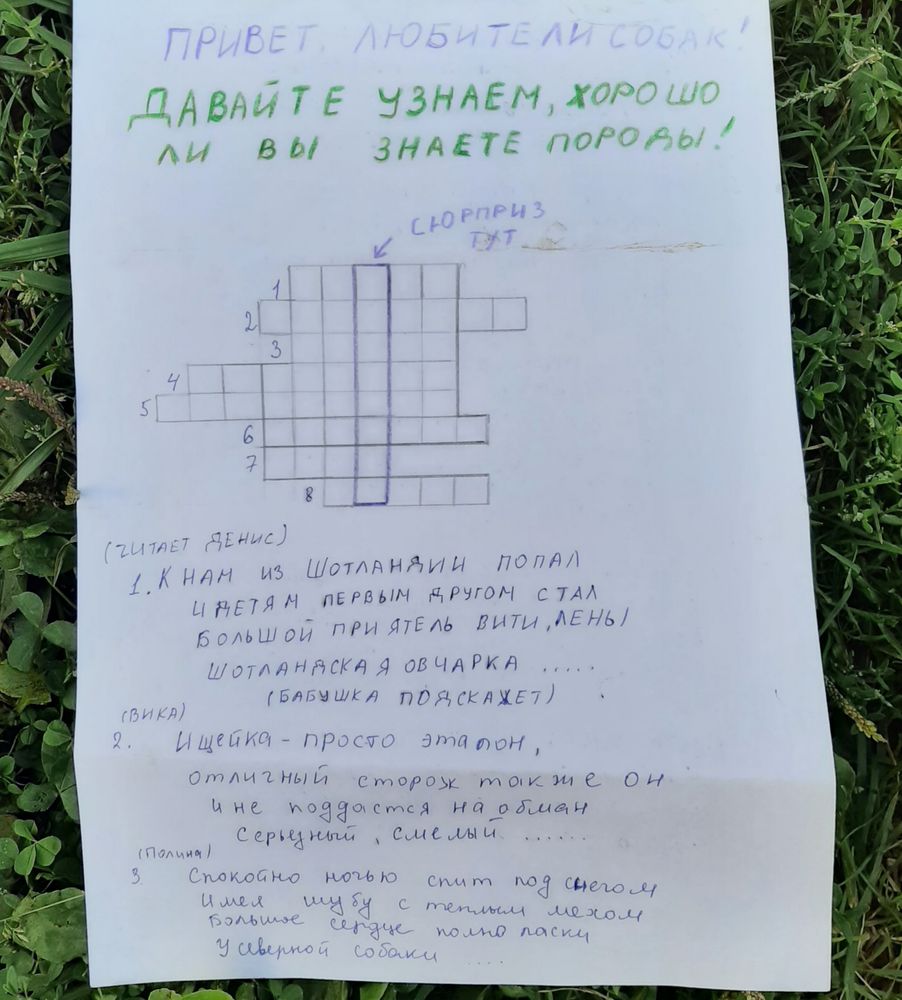 ПРИВЕТ, ЛЮБИТЕЛИ СОБАК!
ДАВАЙТЕ УЗНАЕМ, ХОРОШО
ЛИ ВЫ ЗНАЕТЕ ПОРОДЫ!
СЮРПРИЗ
ТУТ
1
2
3
4
5
6
7
8
(ЧИТАЕТ ДЕНИС)
1. К НАМ ИЗ ШОТЛАНДИИ ПОПАЛ
И ДЕТЯМ ПЕРВЫМ ДРУГОМ СТАЛ
БОЛЬШОЙ ПРИЯТЕЛЬ ВИТИ, ЛЕНЫ
ШОТЛАНДСКАЯ ОВЧАРКА .....
(БАБУШКА ПОДСКАЖЕТ)
(ВИКА)
2. Ищейка - просто эталон,
отличный сторож также он
и не поддастся на обман
Серьезный, смелый ......
(Полина)
3. Спокойно ночью спит под снегом
Имея шубу с теплым мехом
Большое сердце полно ласки
У северной собаки ....